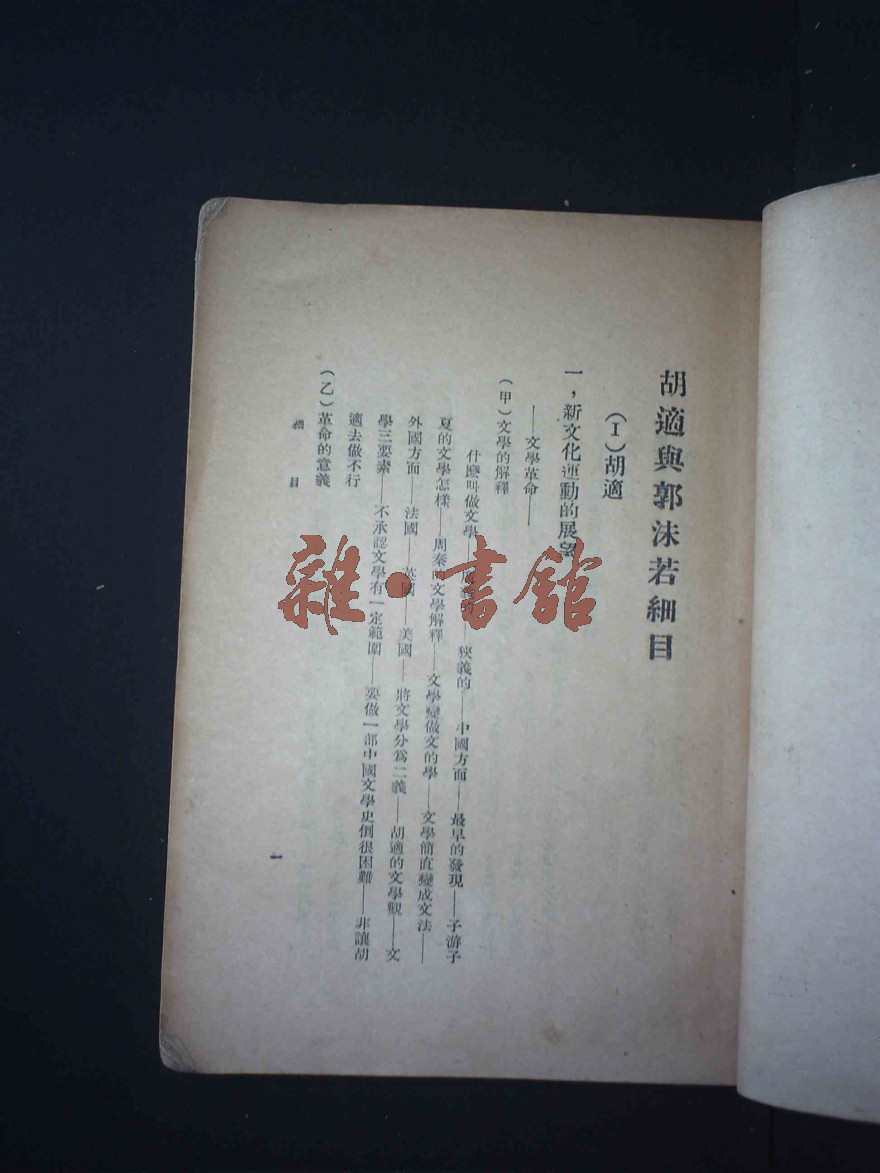 胡適與郭沫若細目
(I)胡適
一，新文化運動的展望
——文學革命——
(甲)文學的解釋
什麼叫做文學——狹義的——中國方面——最早的發現——子游子
夏的文學怎樣——周秦文學解釋——文學變做文的學——文學簡直變成文法——
外國方面——法國——英國——美國——將文學分爲二義——胡適的文學觀——文
學三要素——不承認文學有一定範圍——要做一部中國文學史倒很困難——非讓胡
適去做不行
(乙)革命的意義
細目
一
雜·書館